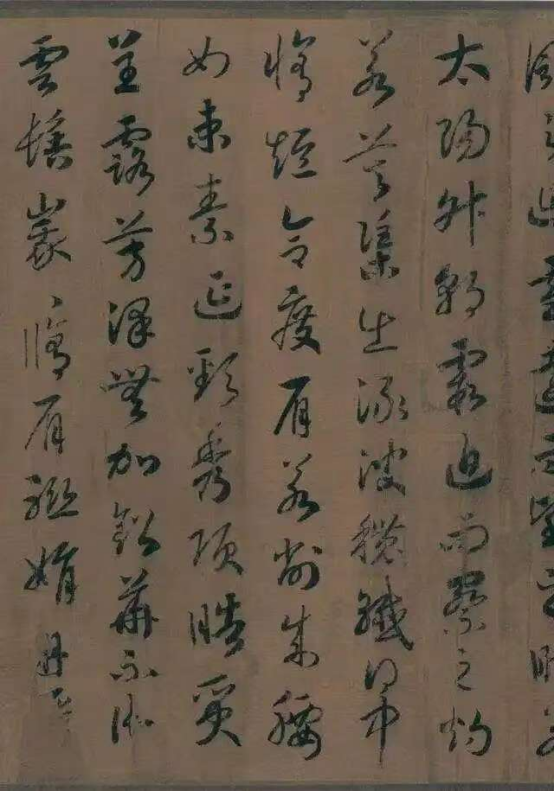 太陽升朝霞迫而察之灼
若芙蕖出淥波穠纖得中
脩短合度肩若削成腰
如束素延頸秀項皓質
呈露芳澤無加鉛華不御
雲髻峩〻脩眉聯娟丹脣